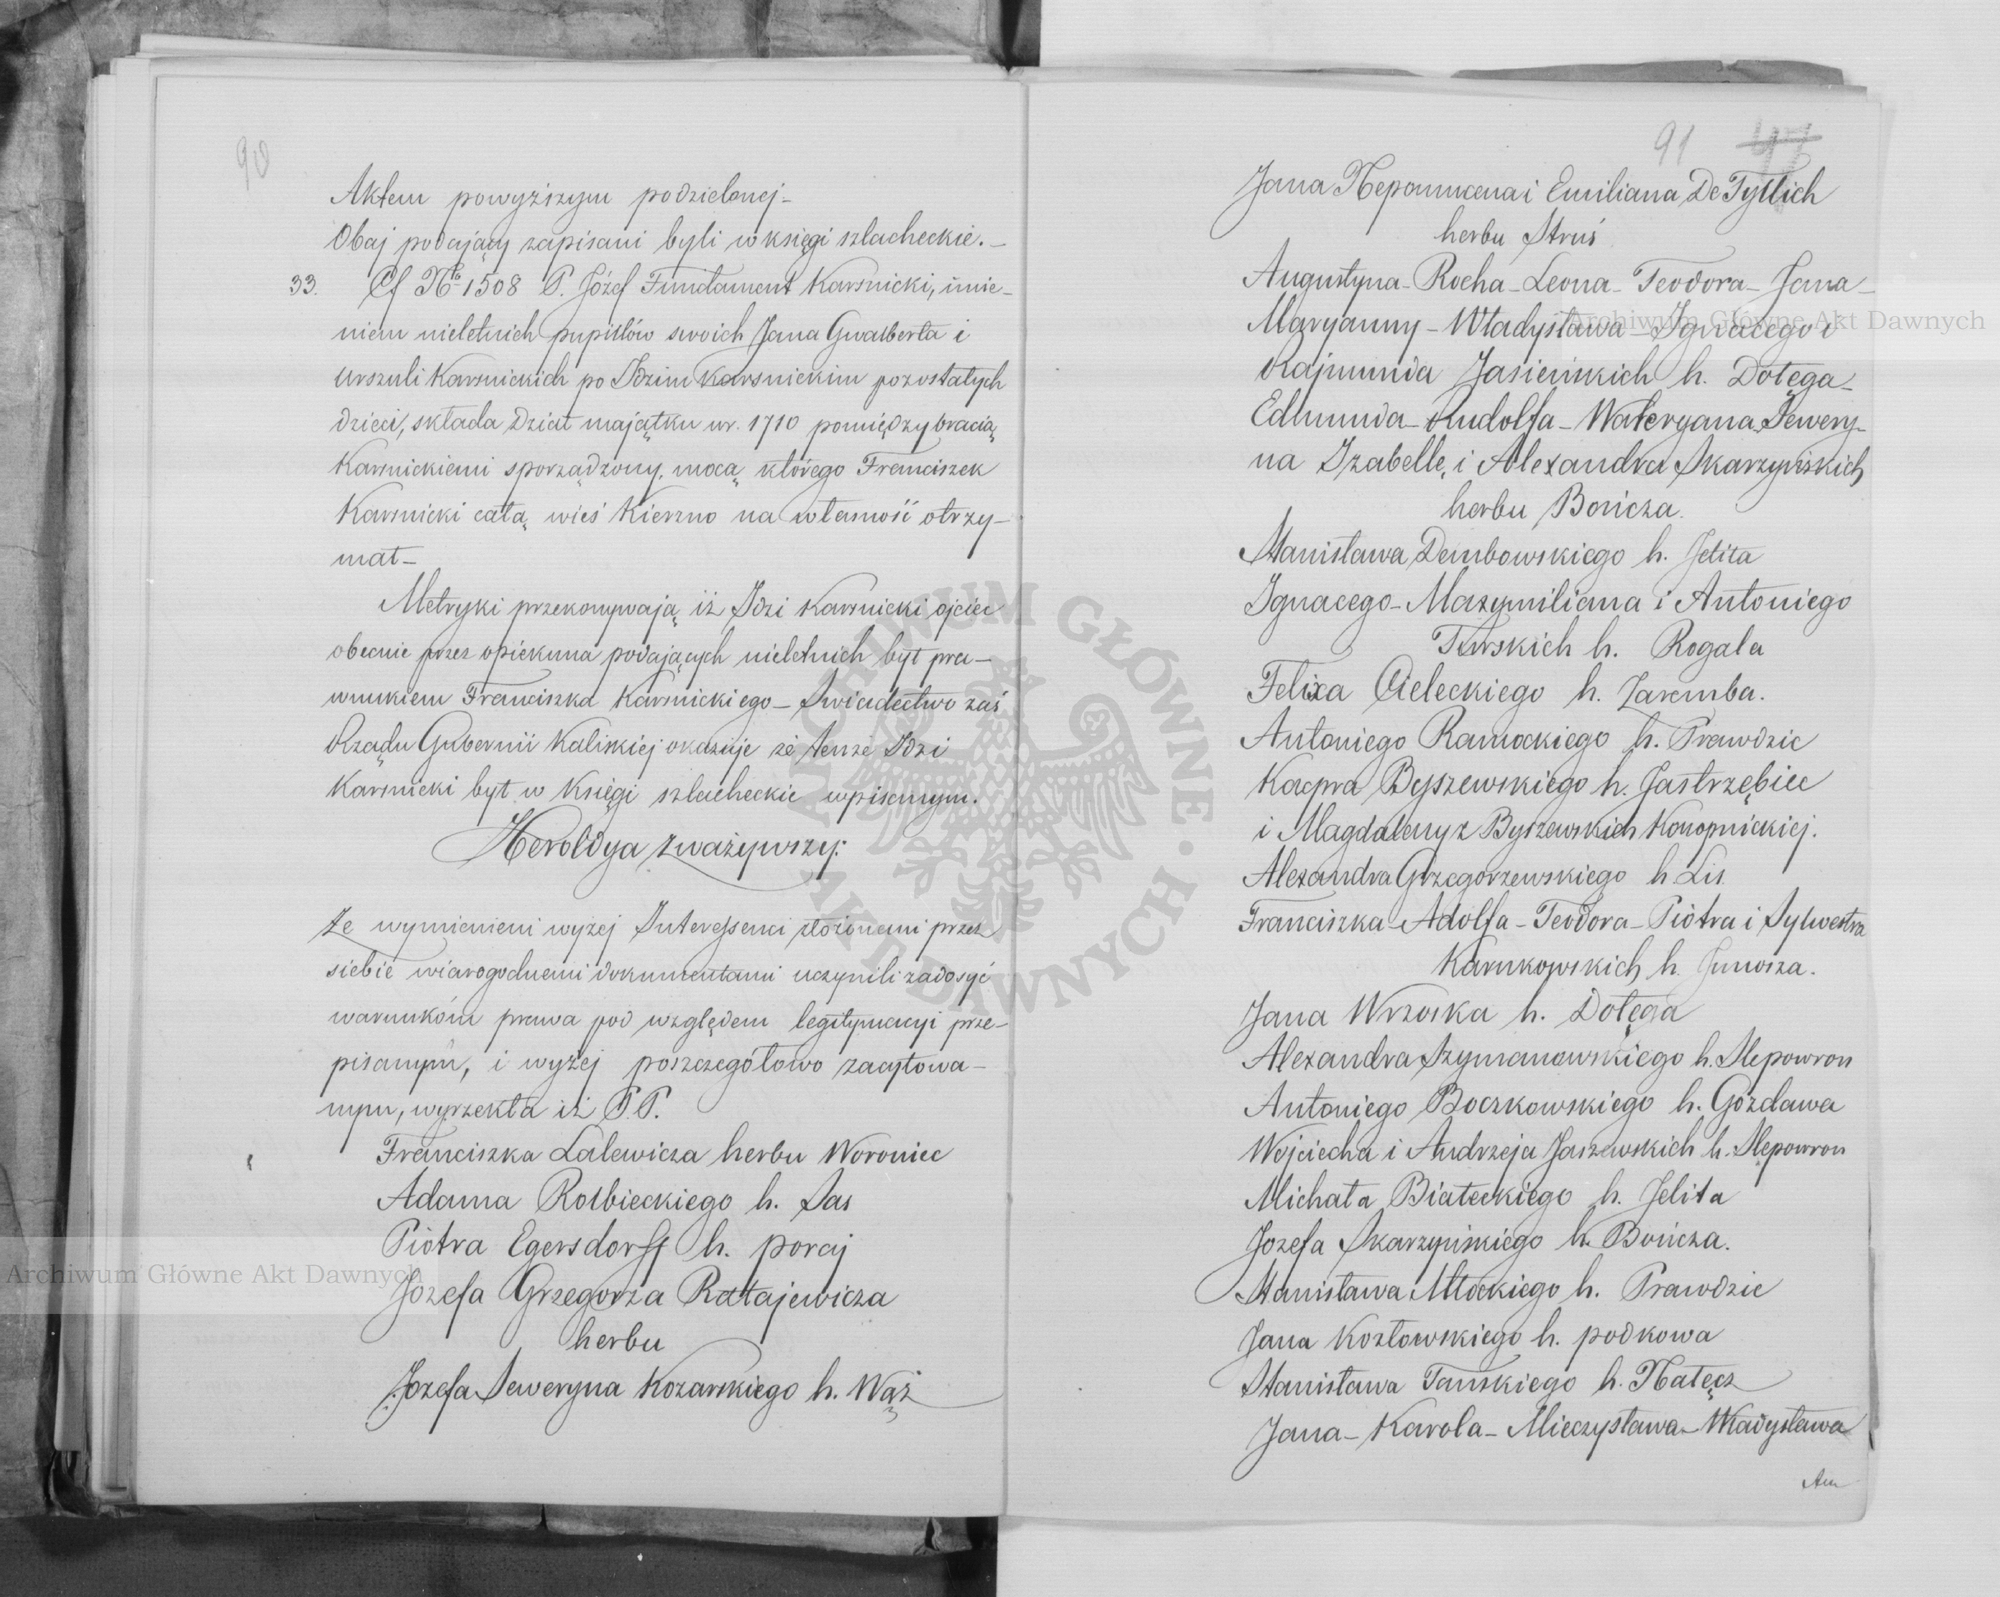 90
Aktem powyższym podzielonej –
Obaj podający zapisani byli w księgi szlacheckie. –
33. Cf No 1508 P. Józef Fundament Karsnicki, imie-
niem nieletnich pupillów swoich Jana Gwalberta i
Urszuli Karsnickich po Idzim Karsnickim pozostałych
dzieci, składa Dział majątku w r. 1710 pomiędzy bracią
Karsnickiemi sporządzony, mocą którego Franciszek
Karsnicki całą wieś Kierzno na własność otrzy-
mał –
Metryki przekonywają iż Idzi Karsnicki ojciec
obecnie przez opiekuna podających nieletnich był pra-
wnukiem Franciszka Karsnickiego – Swiadectwo zaś
Rządu Gubernii Kaliskiej okazuje że tenże Idzi
Karsnicki był w Księgi szlacheckie wpisanym.
Heroldya zważywszy:
że wymienieni wyżej Interessenci złożonemi przez
siebie wiarogodnemi dokumentami uczynili zadosyć
warunkóm prawa pod względem legitymacyi prze-
pisanym, i wyżej poszczegółowo zacytowa-
nym, wyrzekła iż P.P.
Franciszka Lalewicza herbu Woroniec
Adama Rolbieckiego h. Sas
Piotra Egersdorff h. poraj
Józefa Grzegorza Ratajewicza
herbu
Józefa Seweryna Kozarskiego h. Wąż
91
Jana Nepomucena i Emiliana De Tyllich
herbu Struś
Augustyna – Rocha – Leona – Teodora – Jana –
Maryanny – Władysława – Ignacego i
Rajmunda Jasieńskich h. Dołęga –
Edmunda – Rudolfa – Waleryana Sewery-
na Izabellę i Alexandra Skarzyńskich
herbu Bończa.
Stanisława Dembowskiego h. Jelita
Ignacego – Maxymiliana i Antoniego
Turskich h. Rogala
Felixa Cieleckiego h. Zaremba.
Antoniego Ramockiego h. Prawdzic
Kacpra Byszewskiego h. Jastrzębiec
i Magdaleny z Byszewskich Konopnickiej.
Alexandra Grzegorzewskiego h Lis
Franciszka – Adolfa – Teodora – Piotra i Sylwestra
Karnkowskich h. Junosza.
Jana Wrzoska h. Dołęga
Alexandra Szymanowskiego h. Slepowron
Antoniego Boczkowskiego h. Gozdawa
Wojciecha i Andrzeja Jaszewskich h. Slepowron
Michała Białeckiego h. Jelita
Józefa Skarzyńskiego h. Bończa.
Stanisława Młockiego h. Prawdzic
Jana Kozłowskiego h. podkowa
Stanisława Tańskiego h. Nałęcz
Jana – Karola – Mieczysława – Władysława
Archiwum Główne Akt Dawnych
Archiwum Główne Akt Dawnych
ARCHIWUM GŁÓWNE · AKT DAWNYCH ·